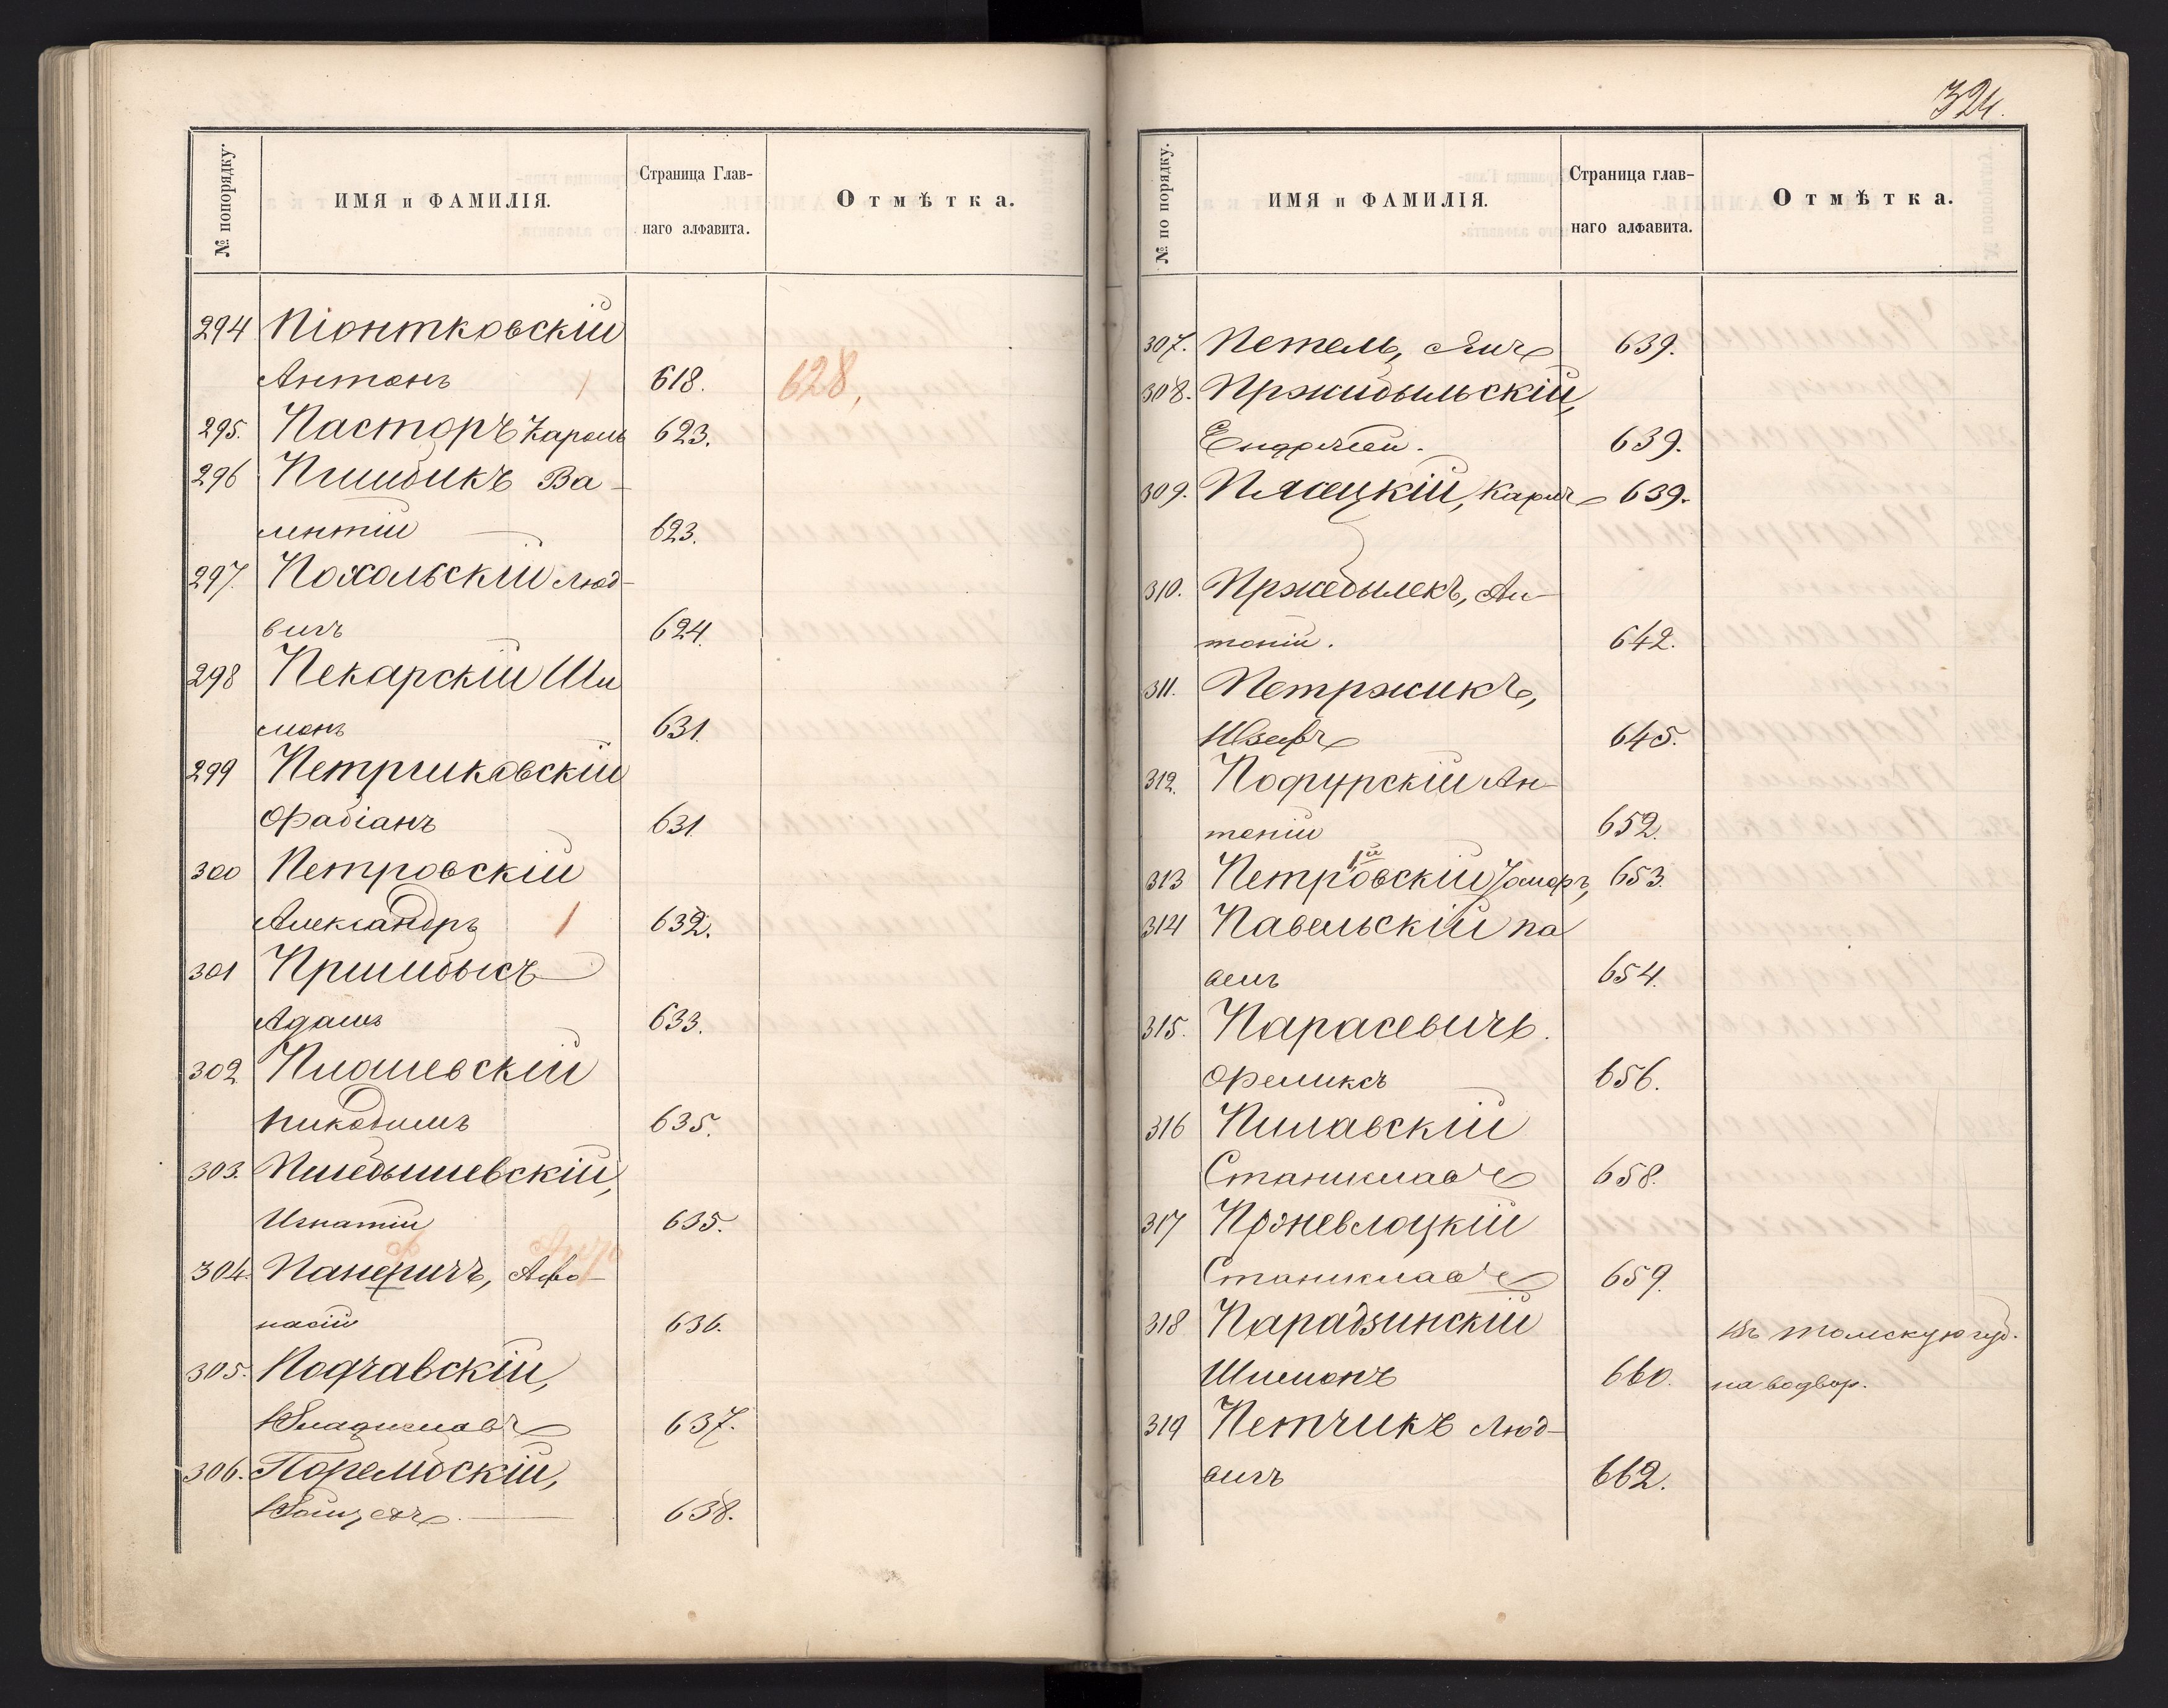 № попорядку.
ИМЯ и ФАМИЛІЯ.
Страница Глав-
наго алфавита.
Отмѣтка.
294 Піонтковскій
Антонъ 1 618. 628,
295. Пасторъ Кароль 623.
296 Пшибикъ Ва-
лентій 623.
297. Похольскій Люд-
вигъ 624.
298 Пекарскій Ши
монъ 631.
299 Петриковскій
Фабіанъ 631
300 Петровскій
Александръ 1 632.
301 Пришибысъ
Адамъ 633.
302 Пиошевскій
Никодимъ 635.
303. Пшебышевскій,
Игнатій 635.
304. Панфричъ, Афа-
насій 636.
305. Подчавскій,
Владиславъ 637.
306. Порембскій,
Войцехъ 638.
324.
№ по порядку.
ИМЯ и ФАМИЛІЯ.
Страница глав-
наго алфавита.
Отмѣтка.
307. Петель, Янъ 639.
308. Пржибыльскій,
Ендржей. 639.
309. Плясецкій, Карлъ 639.
310. Пржебылекъ, Ан-
тоній. 642.
311. Петржикъ,
Юзефъ 645.
312. Подгурскій Ан-
тоній 652.
313 Петровскій 1й 653.
314 Павельскій па
велъ 654.
315. Парасевичъ.
Феликсъ 656.
316 Пилавскій
Станиславъ 658.
317 Пржевлоцкій
Станиславъ 659.
318 Парадзинскій Въ Томскую губ.
Шимонъ 660. на водвор.
319 Петчикъ Люд-
вигъ 662.